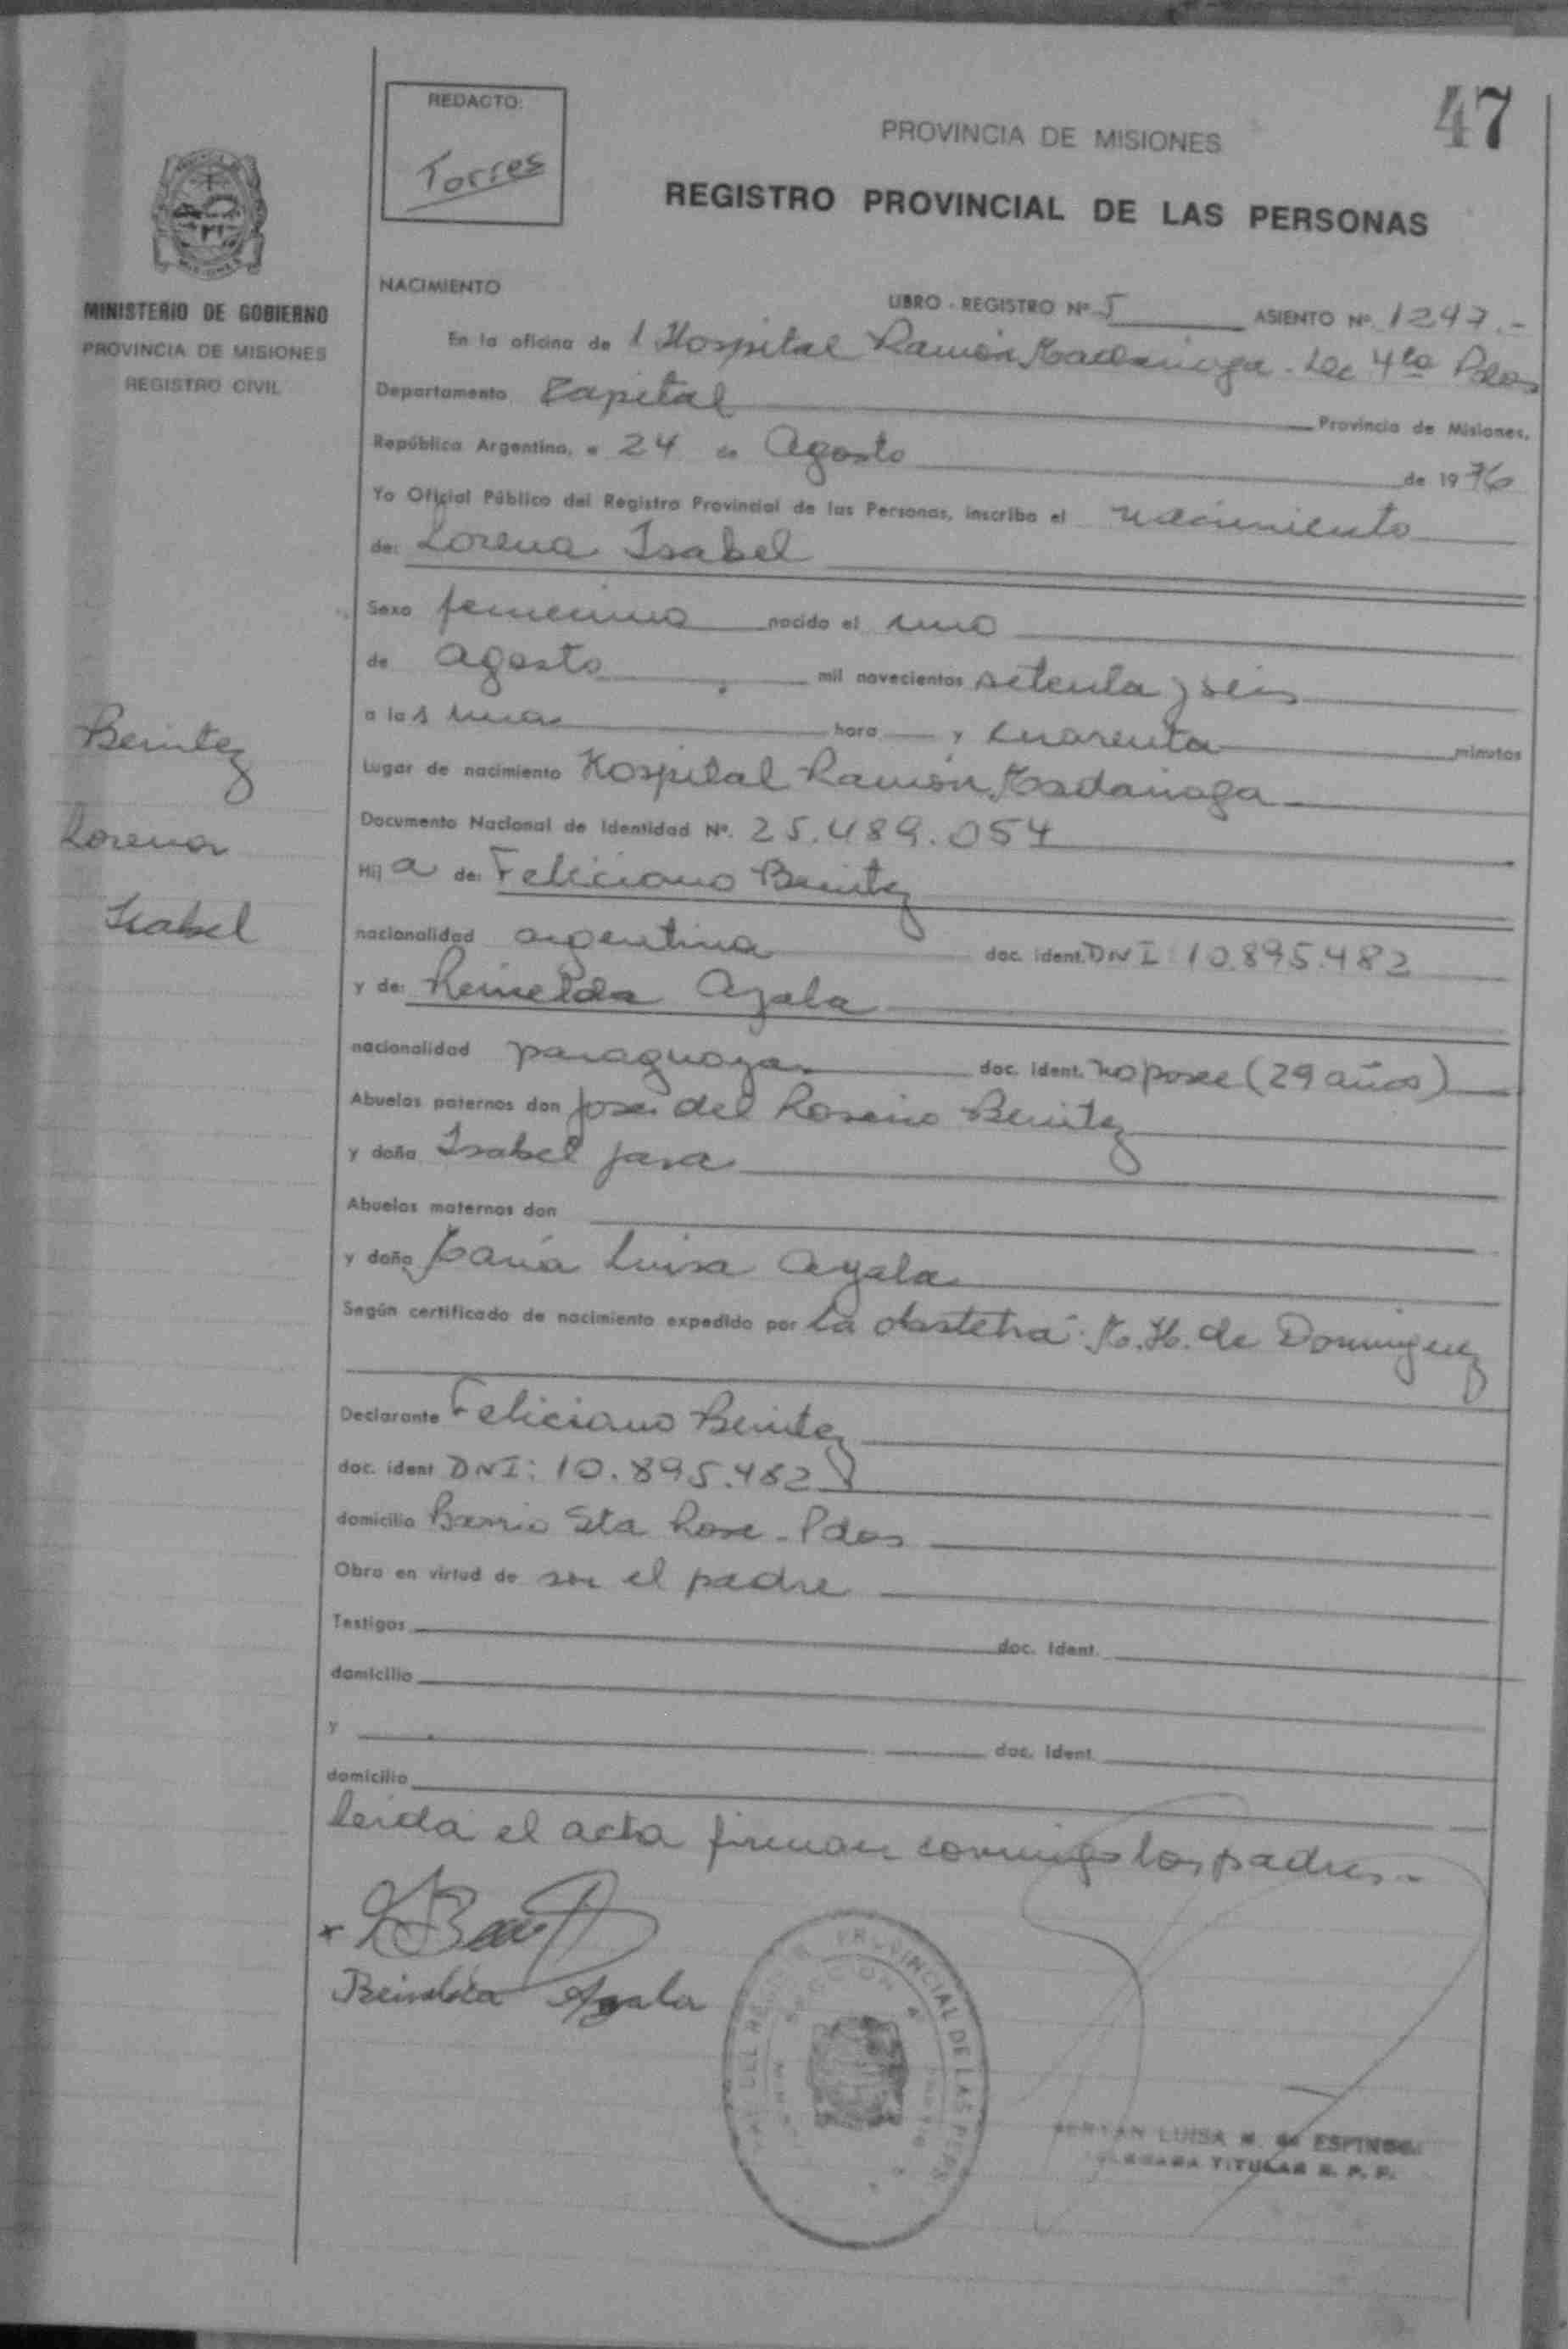 47
REDACTO:
Torres
PROVINCIA DE MISIONES
REGISTRO PROVINCIAL DE LAS PERSONAS
MISIONES
MINISTERIO DE GOBIERNO
PROVINCIA DE MISIONES
REGISTRO CIVIL
Benitez
Lorena
Isabel
NACIMIENTO
LIBRO - REGISTRO Nº 5 ASIENTO Nº 1247.-
En la oficina de l Hospital Ramón Madariaga - Sec 4ta Pdas
Departamento Capital Provincia de Misiones,
República Argentina, a 24 de Agosto de 1976
Yo Oficial Público del Registro Provincial de las Personas, inscribo el nacimiento
de: Lorena Isabel
Sexo femenino nacido el uno
de agosto mil novecientos setenta y seis
a las una hora y cuarenta minutos
Lugar de nacimiento Hospital Ramón Madariaga
Documento Nacional de Identidad Nº. 25.489.054
Hij a de: Feliciano Benitez
nacionalidad argentina doc. ident. DNI: 10.895.482
y de: Reinelda Ayala
nacionalidad paraguaya doc. ident. no posee (29 años)
Abuelos paternos don José del Rosario Benitez
y doña Isabel Jara
Abuelos maternos don
y doña María Luisa Ayala
Según certificado de nacimiento expedido por la obstetra: M. H. de Dominguez
Declarante Feliciano Benitez
doc. ident DNI: 10.895.482
domicilio Barrio Sta Rosa - Pdas
Obra en virtud de ser el padre
Testigos doc. Ident.
domicilio
y doc. Ident.
domicilio
Leida el acta firman conmigo los padres.-
Reinelda Ayala
PROVINCIAL DE LAS PERS
LUISA M. de ESPINOSA
TITULAR R. P. P.